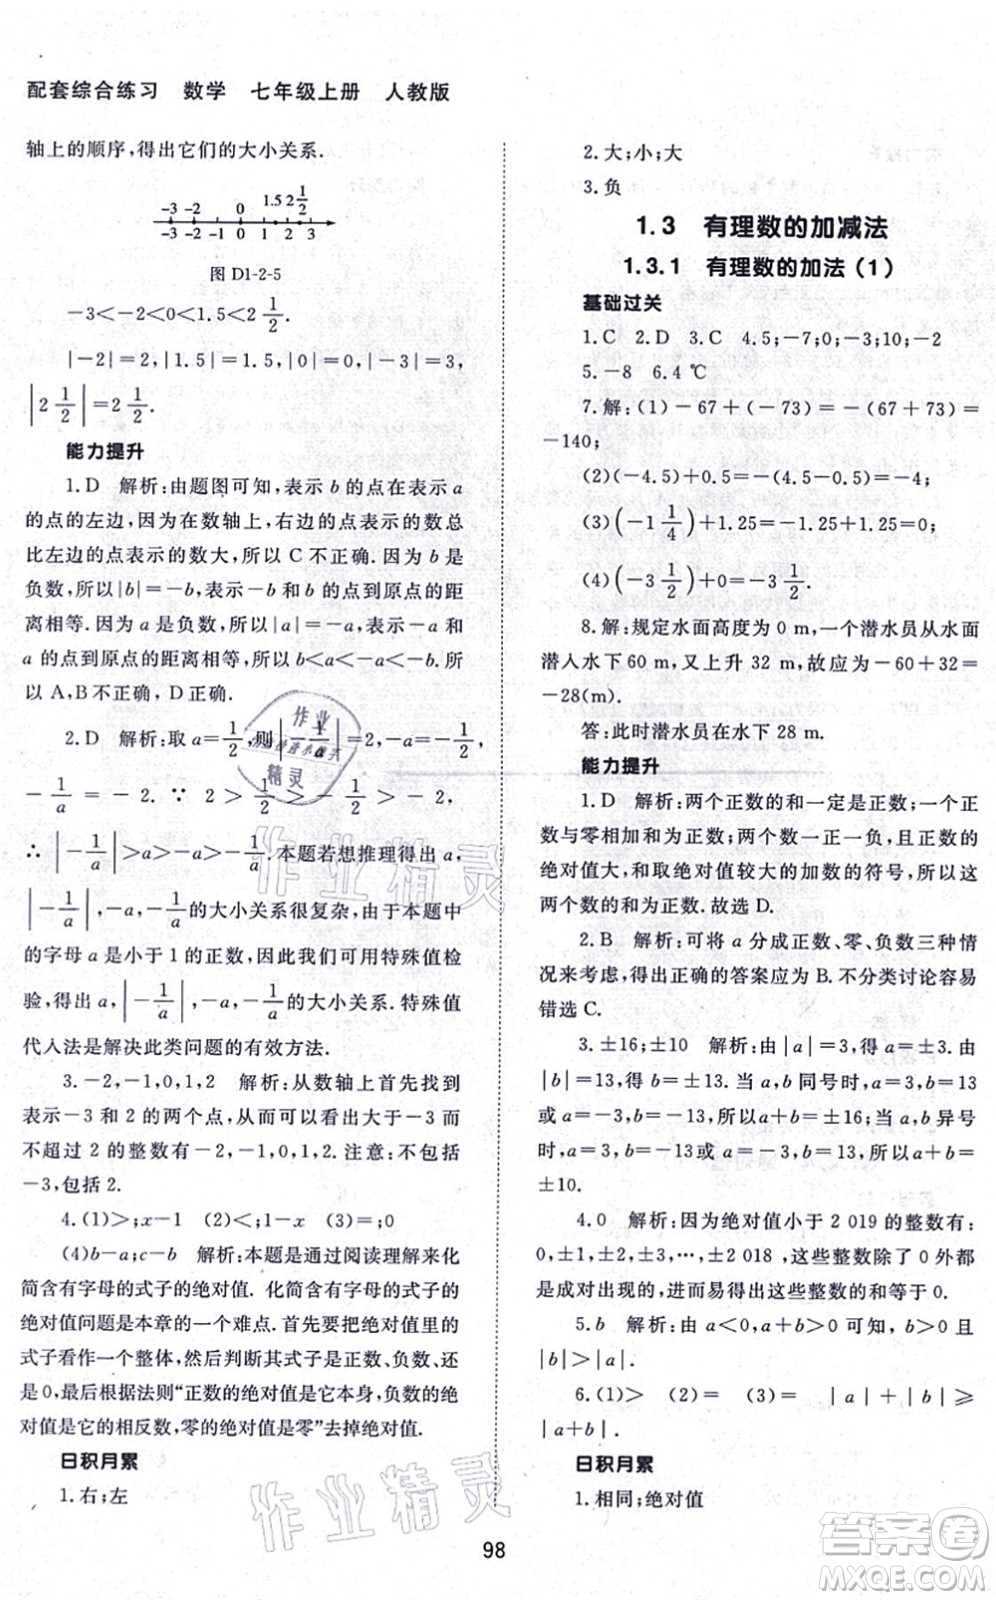 配套综合练习 数学 七年级上册 人教版
轴上的顺序,得出它们的大小关系.
-3 -2 0 1.5 2 2 1/2
-3 -2 -1 0 1 2 3
图 D1-2-5
-3<-2<0<1.5<2 1/2.
|-2|=2,|1.5|=1.5,|0|=0,|-3|=3,
|2 1/2|=2 1/2.
能力提升
1.D 解析:由题图可知,表示 b 的点在表示 a
的点的左边,因为在数轴上,右边的点表示的数总
比左边的点表示的数大,所以 C 不正确.因为 b 是
负数,所以|b|=-b,表示-b 的点到原点的距
离相等.因为 a 是负数,所以|a|=-a,表示-a 和
a 的点到原点的距离相等,所以 b<a<-a<-b.所
以 A,B 不正确,D 正确.
2.D 解析:取 a=1/2,则|-1/a|=2,-a=-1/2,
-1/a=-2.∵ 2>1/2>-1/2>-2,
∴|-1/a|>a>-a>-1/a.本题若想推理得出 a,
|-1/a|,-a,-1/a的大小关系很复杂,由于本题中
的字母 a 是小于 1 的正数,因此可用特殊值检
验,得出 a,|-1/a|,-a,-1/a的大小关系.特殊值
代入法是解决此类问题的有效方法.
3.-2,-1,0,1,2 解析:从数轴上首先找到
表示-3 和 2 的两个点,可以看出大于-3 而
不超过 2 的整数有-2,-1,0,1,2.注意:不包括
-3,包括 2.
4.(1)>;x-1 (2)<;1-x (3)=;0
(4)b-a;c-b 解析:本题是通过阅读理解来化
简含有字母的式子的绝对值. 化简含有字母的式子的
绝对值问题是本章的一个难点.首先要把绝对值里的
式子看作一个整体,然后判断式子是正数、负数、还
是 0,最后根据法则“正数的绝对值是它本身,负数的绝
对值是它的相反数,零的绝对值是零”去掉绝对值.
日积月累
1.右;左
2.大;小;大
3.负
1.3 有理数的加减法
1.3.1 有理数的加法(1)
基础过关
1.C 2.D 3.C 4.5;-7;0;-3;10;-2
5.-8 6.4 ℃
7.解:(1)-67+(-73)=-(67+73)=
-140;
(2)(-4.5)+0.5=-(4.5-0.5)=-4;
(3)(-1 1/4)+1.25=-1.25+1.25=0;
(4)(-3 1/2)+0=-3 1/2.
8.解:规定水面高度为 0 m,一个潜水员从水面
潜入水下 60 m,又上升 32 m,故应为-60+32=
-28(m).
答:此时潜水员在水下 28 m.
能力提升
1.D 解析:两个正数的和一定是正数;一个正
数与零相加和为正数;两个数一正一负,且正数的
绝对值大,和取绝对值较大的加数的符号,所以这
两个数的和为正数.故选 D.
2.B 解析:可将 a 分成正数、零、负数三种情
况来考虑,得出正确的答案应为 B.不分类讨论容易
错选 C.
3.±16;±10 解析:由|a|=3,得 a=±3.由
|b|=13,得 b=±13.当 a,b 同号时,a=3,b=13
或 a=-3,b=-13,所以 a+b=±16;当 a,b 异号
时,a=3,b=-13 或 a=-3,b=13,所以 a+b=
±10.
4.0 解析:因为绝对值小于 2 019 的整数有:
0,±1,±2,±3,…,±2 018,这些整数除了 0 外都
是成对出现的,进而易得出这些整数之和为 0.
5.b 解析:由 a<0,a+b>0 可知,b>0,且
|b|>|a|.
6.(1)> = = (2)= (3)> =|a|+|b|≥
|a+b|
日积月累
1.相同;绝对值
98
作业精灵
作业精灵
作业
精灵
答案圈
MXQE.COM